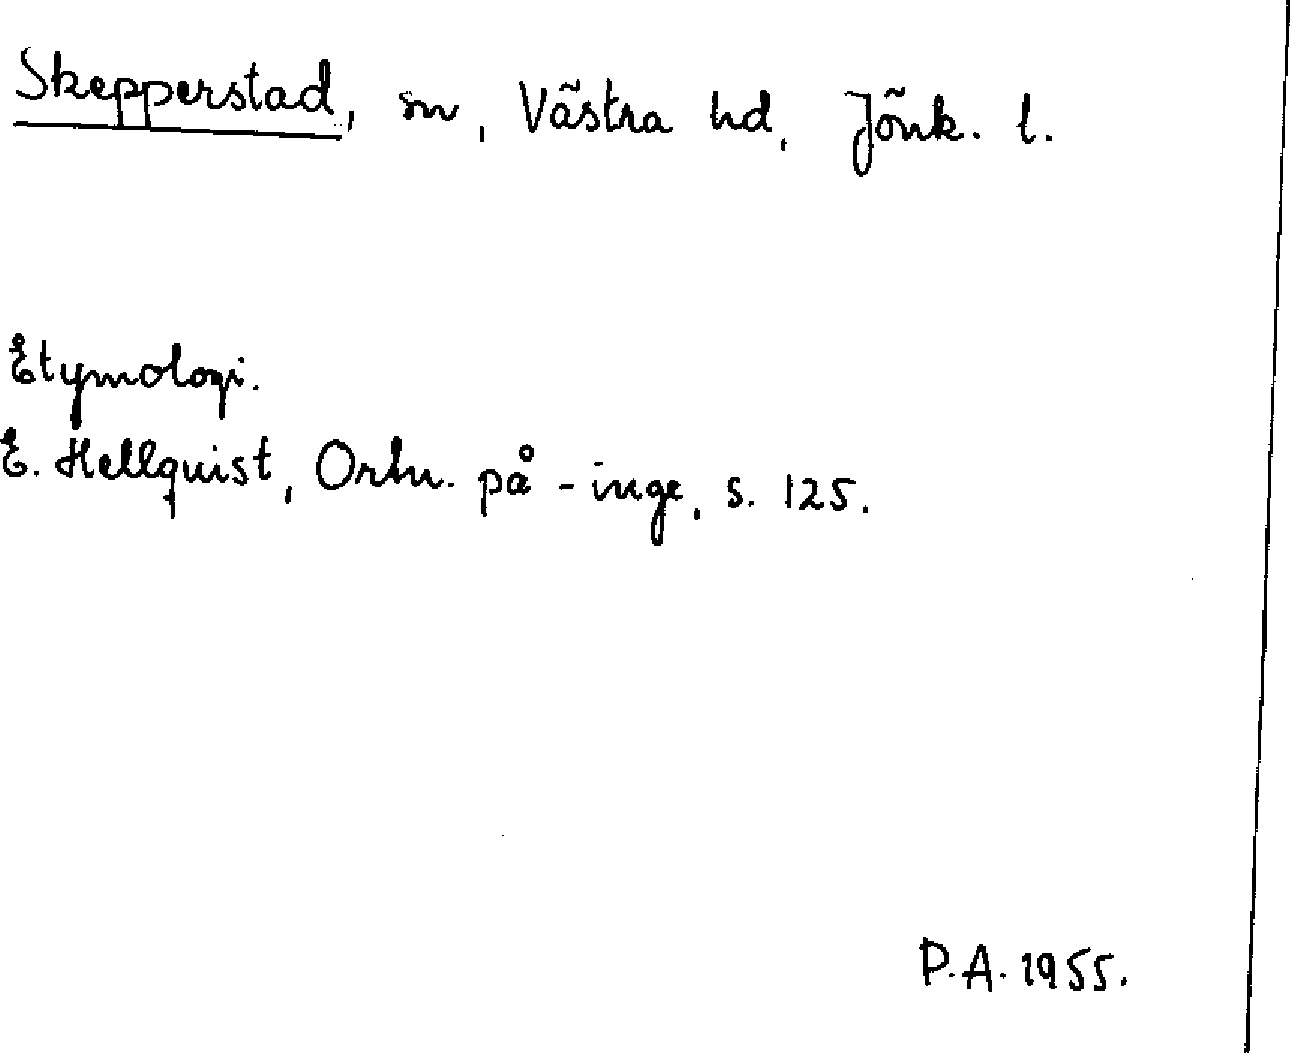 Skepperstad, sn, Västra hd, Jönk. l.
Etymologi.
E. Hellquist, Ortn. på -inge, s. 125.
P.A. 1955.